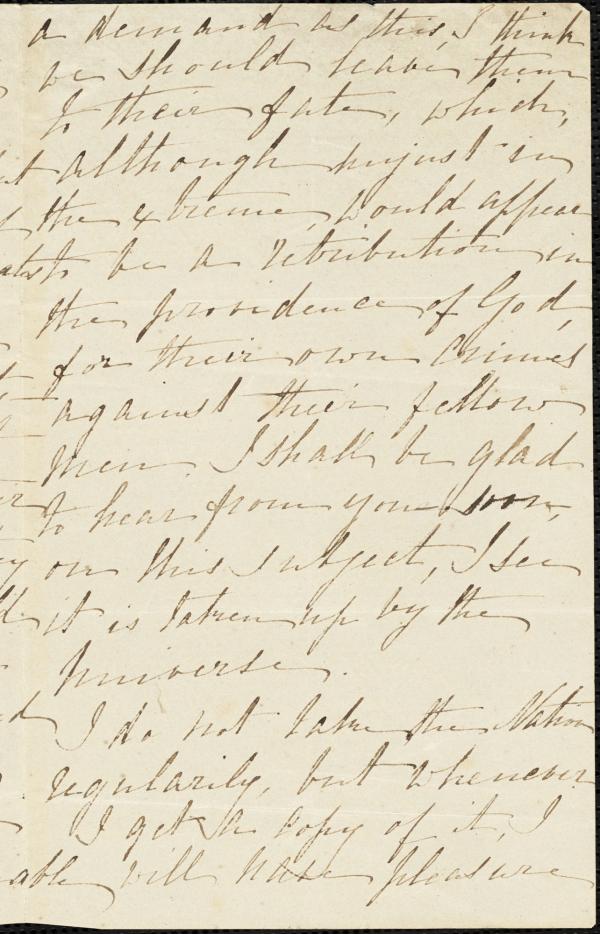 a demand as this, I think
we should leave them
to their fate, which,
although unjust in
the extreme, would appear
to be a retribution in
the providence of God,
for their own crimes
against their fellow
men. I shall be glad
to hear from you soon,
on this subject, I see
it is taken up by the
Universe.
I do not take the Nation
regularily, but whenever
I get a copy of it, I
will have pleasure